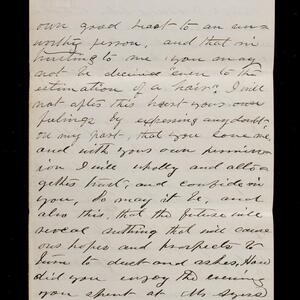 own good heart to an unw
worthy person, and that in
writing to me you may
not be deceived "even to the
estimation of a hair." I will
not after this hurt your own
feelings by expressing any doubt
on my part, that you love me,
and with your own permiss
ion I will wholly and alto
gether trust, and confide in
you, so may it be, and
also this, that the future will
reveal nothing that will cause
our hopes and prospects to
turn to dust and ashes. How
did you enjoy the evening
you spent at Mr.